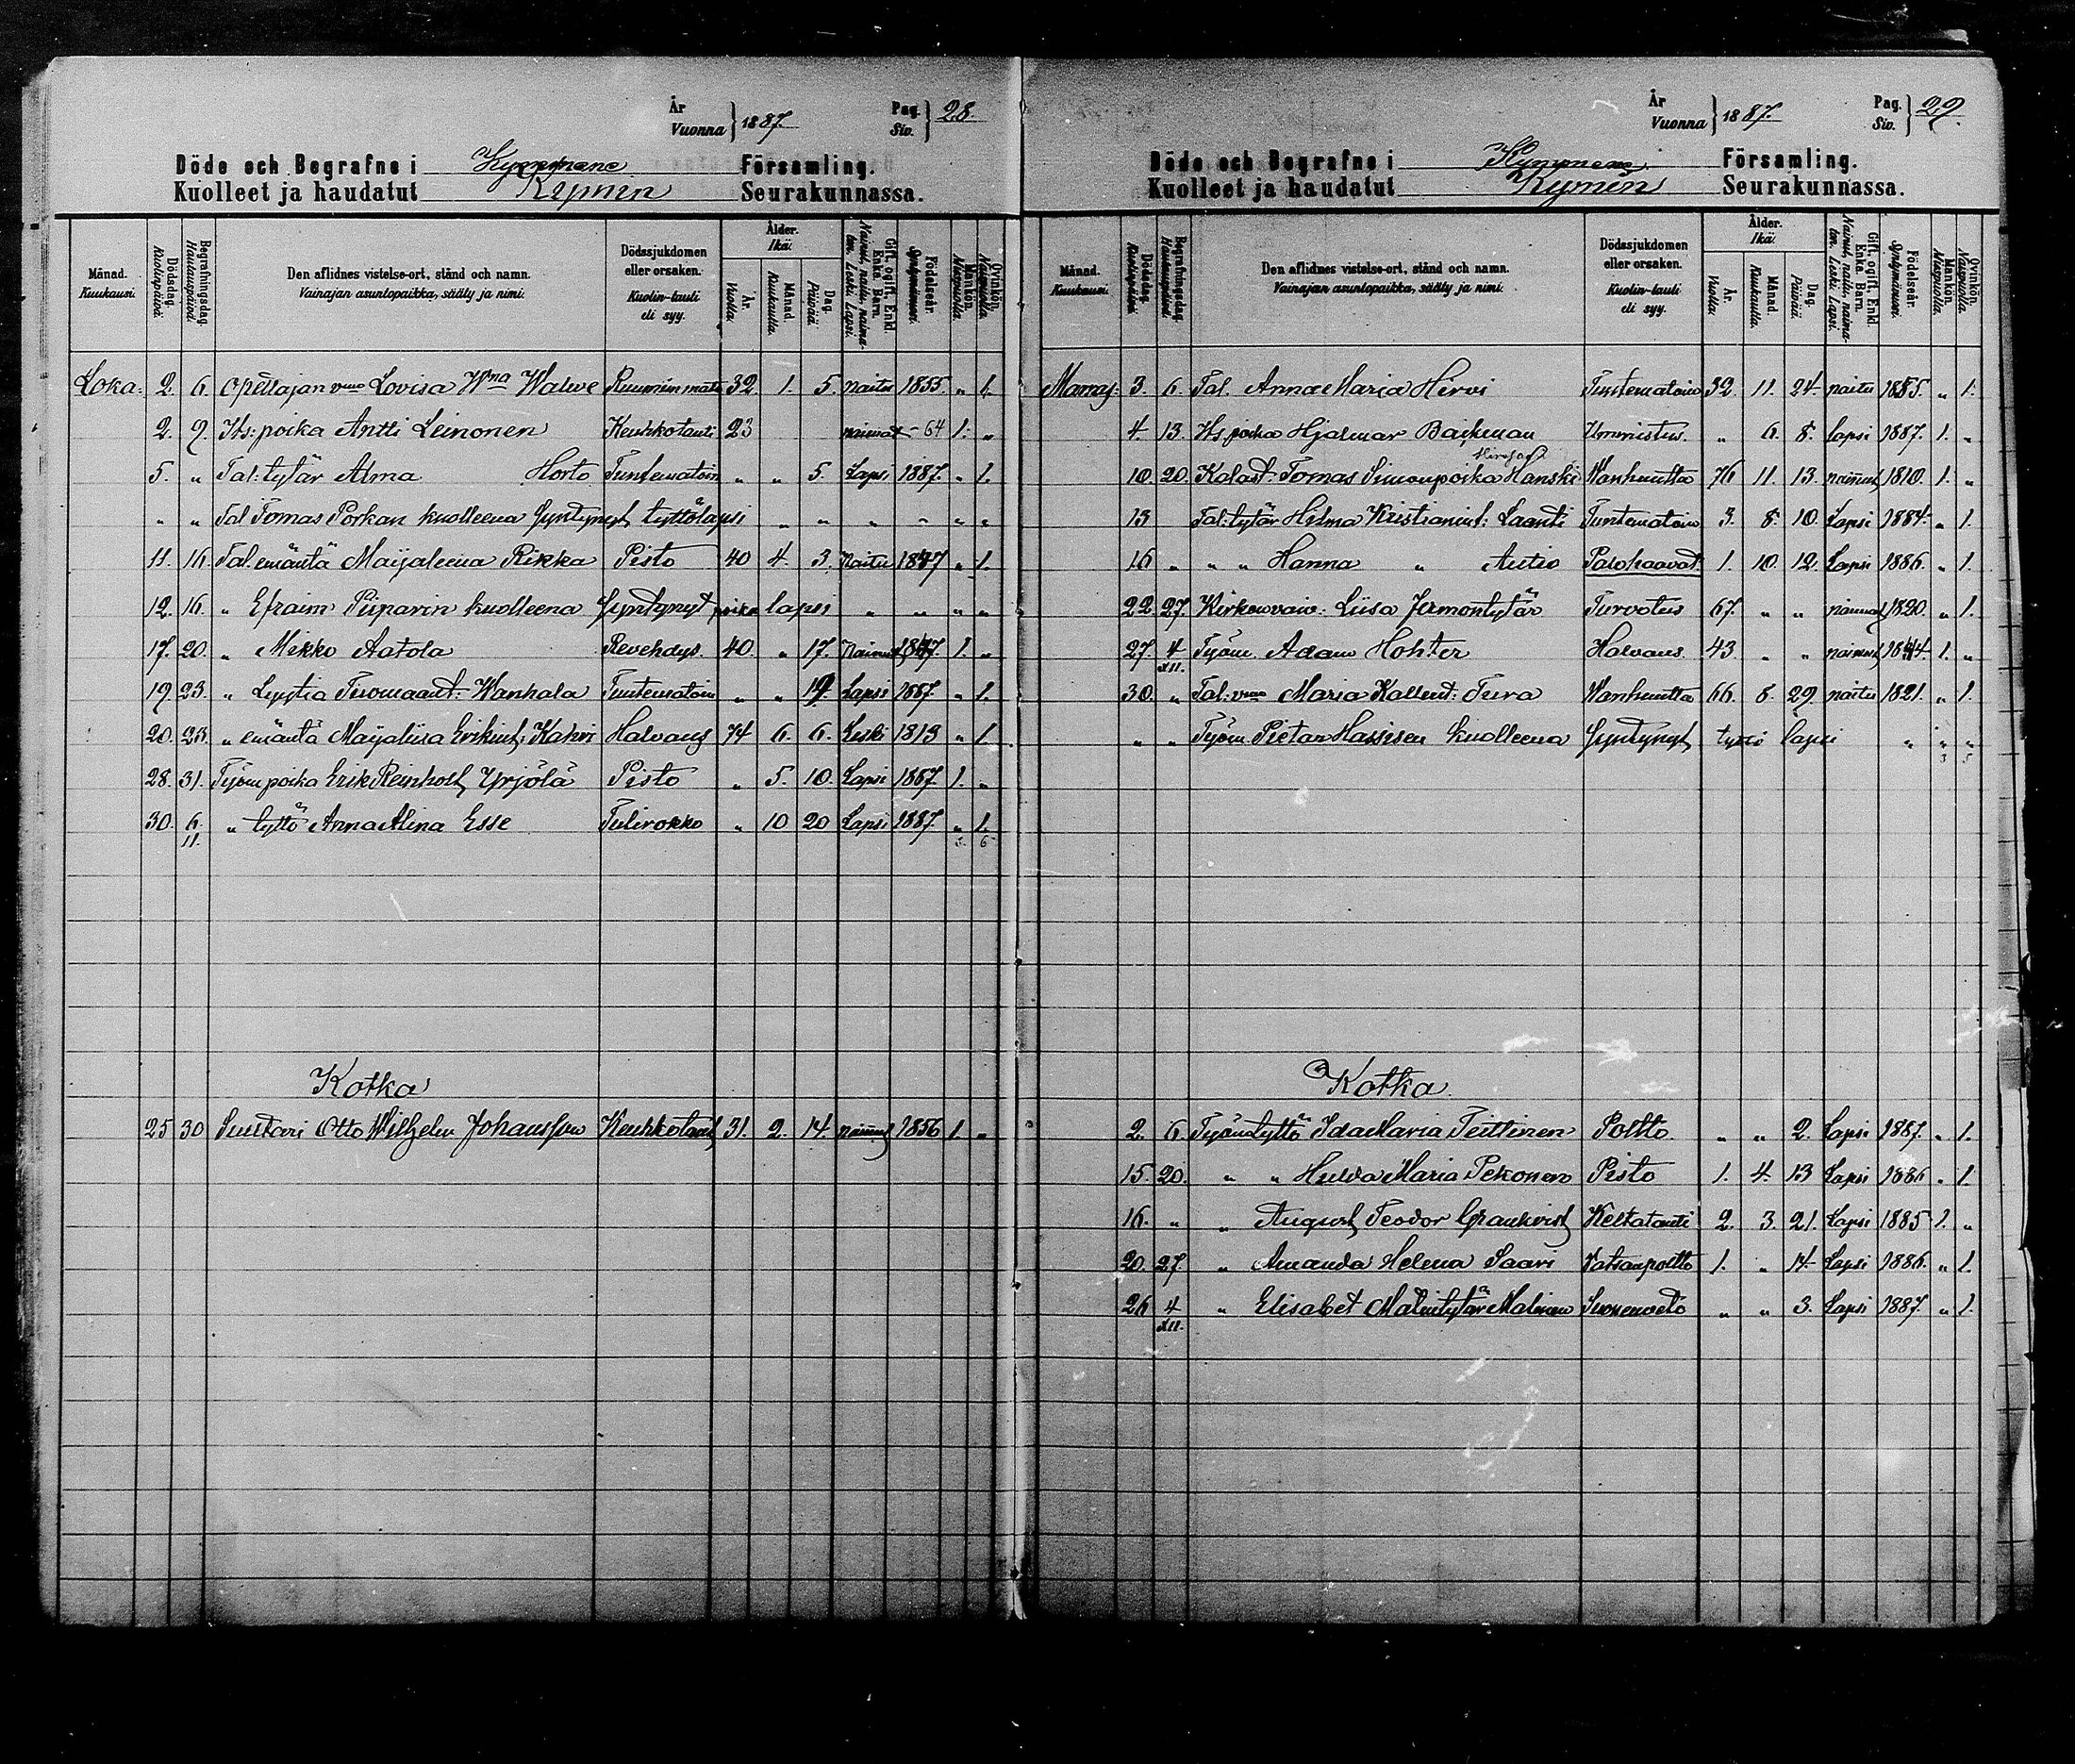 År
Vuonna } 1887. Pag. Siv. } 28.
Döde och Begrafne i Kymmene Församling.
Kuolleet ja haudatut Kymin Seurakunnassa.
Månad. Kuukausi. Dödsdag. Kuolinpäivä. Begrafningsdag. Hautauspäivä. Den aflidnes vistelse-ort, stånd och namn. Vainajan asuntopaikka, sääty ja nimi. Dödssjukdomen eller orsaken. Kuolin-tauti eli syy. Ålder. Ikä. År. Vuotta. Månad. Kuukautta. Dag. Päivää. Gift, ogift, Enkl. Enka. Barn. Nainut, naitu, naimaton. Leski. Lapsi. Födelseår. Syntymävuosi. Mankön. Miespuolia. Qvinkön. Naispuolia.
Loka: 2. 6. Opettajan vmo Lovisa Wna Walve 32. 1. 5. naitu 1855. „ 1.
2. 9. Its: poika Antti Leinonen Keuhkotauti 23 naimat - 64 1. „
5. „ Tal: tytär Alma Horto Tuntematoin „ „ 5. Lapsi 1887. „ 1.
„ „ Tal Tomas Porkan kuolleena syntynyt tyttölapsi „ „ „ „ „ „
11. 16. Tal. emäntä Maijaleena Rikka Pisto 40 4. 3. Naitu 1847 „ 1.
12. 16. „ Efraim Piiparin kuolleena Syntynyt poika lapsi „ „ „ „
17. 20. „ Mikko Aatola Revehdys. 40. „ 17. Nainut 1847. 1. „
19. 23. „ Lyytia Tuomaant: Wanhala Tuntematoin „ „ 19. Lapsi 1887. „ 1.
20. 23. „ emäntä Maijaliisa Erikint: Kahri Halvaus 74 6. 6. Leski 1813 „ 1.
28. 31. Työm poika Erik Reinholt Yrjölä Pisto „ 5. 10. Lapsi 1887. 1. „
30. 6/11. „ tyttö Anna Alina Esse Tulirokko „ 10 20 Lapsi 1887. „ 1.
5. 6.
Kotka
25 30 Suutari Otto Wilhelm Johansson Keuhkotauti 31. 2. 14. naimat 1856 1. „
År
Vuonna } 1887. Pag. Siv. } 29.
Döde och Begrafne i Kymmene Församling.
Kuolleet ja haudatut Kymin Seurakunnassa.
Månad. Kuukausi. Dödsdag. Kuolinpäivä. Begrafningsdag. Hautauspäivä. Den aflidnes vistelse-ort, stånd och namn. Vainajan asuntopaikka, sääty ja nimi. Dödssjukdomen eller orsaken. Kuolin-tauti eli syy. Ålder. Ikä. År. Vuotta. Månad. Kuukautta. Dag. Päivää. Gift, ogift, Enkl. Enka. Barn. Nainut, naitu, naimaton. Leski. Lapsi. Födelseår. Syntymävuosi. Mankön. Miespuolia. Qvinkön. Naispuolia.
Marras: 3. 6. Tal. Anna Maria Hirvi Tuntematoin 32. 11. 24. naitu 1855. „ 1.
4. 13. Its poika Hjalmar Backman Ummistus. „ 6. 8. lapsi 1887. 1. „
10. 20. Kalast. Tomas Simonpoika Hanski Wanhuutta 76 11. 13. nainut 1810. 1. „
13 Tal: tytär Hilma Kristianint: Laanti Tuntematoin 3. 8. 10. Lapsi 1884. „ 1.
16 „ „ „ Hanna „ Autio Palohaavat. 1. 10. 12. Lapsi 1886. „ 1.
22. 27. Kirkonvaiv: Liisa Jermontytär Turvotus 67. „ „ naimat 1820. „ 1.
27. 4/XII. Työm. Adam Hohter Halvaus. 43. „ „ nainut 1844. 1. „
30. „ Tal: vmo Maria Kallent: Tura Wanhuutta 66. 8. 29. naitu 1821. „ 1.
„ „ Työm. Pietar Hassisen kuolleena Syntynyt tyttö lapsi „ „ „
3 5
Kotka.
2. 6. Työmtyttö Ida Maria Teittinen Poltto. „ „ 2. Lapsi 1887. „ 1.
15. 20. „ „ Hulda Maria Pekonen Pisto 1. 4. 13 Lapsi 1886. „ 1.
16. „ „ August Teodor Grankvist Keltatauti 2. 3. 21. Lapsi 1885 1. „
20. 27. „ Amanda Helena Saari Vatsanpoltto 1. „ 14. Lapsi 1886. „ 1.
26 4/XII. „ Elisabet Matintytär Malinen Suonenveto „ „ 3. Lapsi 1887. „ 1.